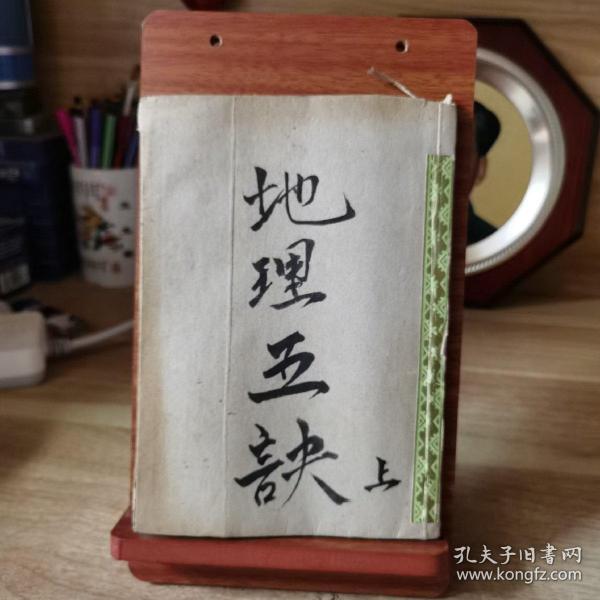 地理五訣
上
孔夫子旧書网
www.kongfz.com